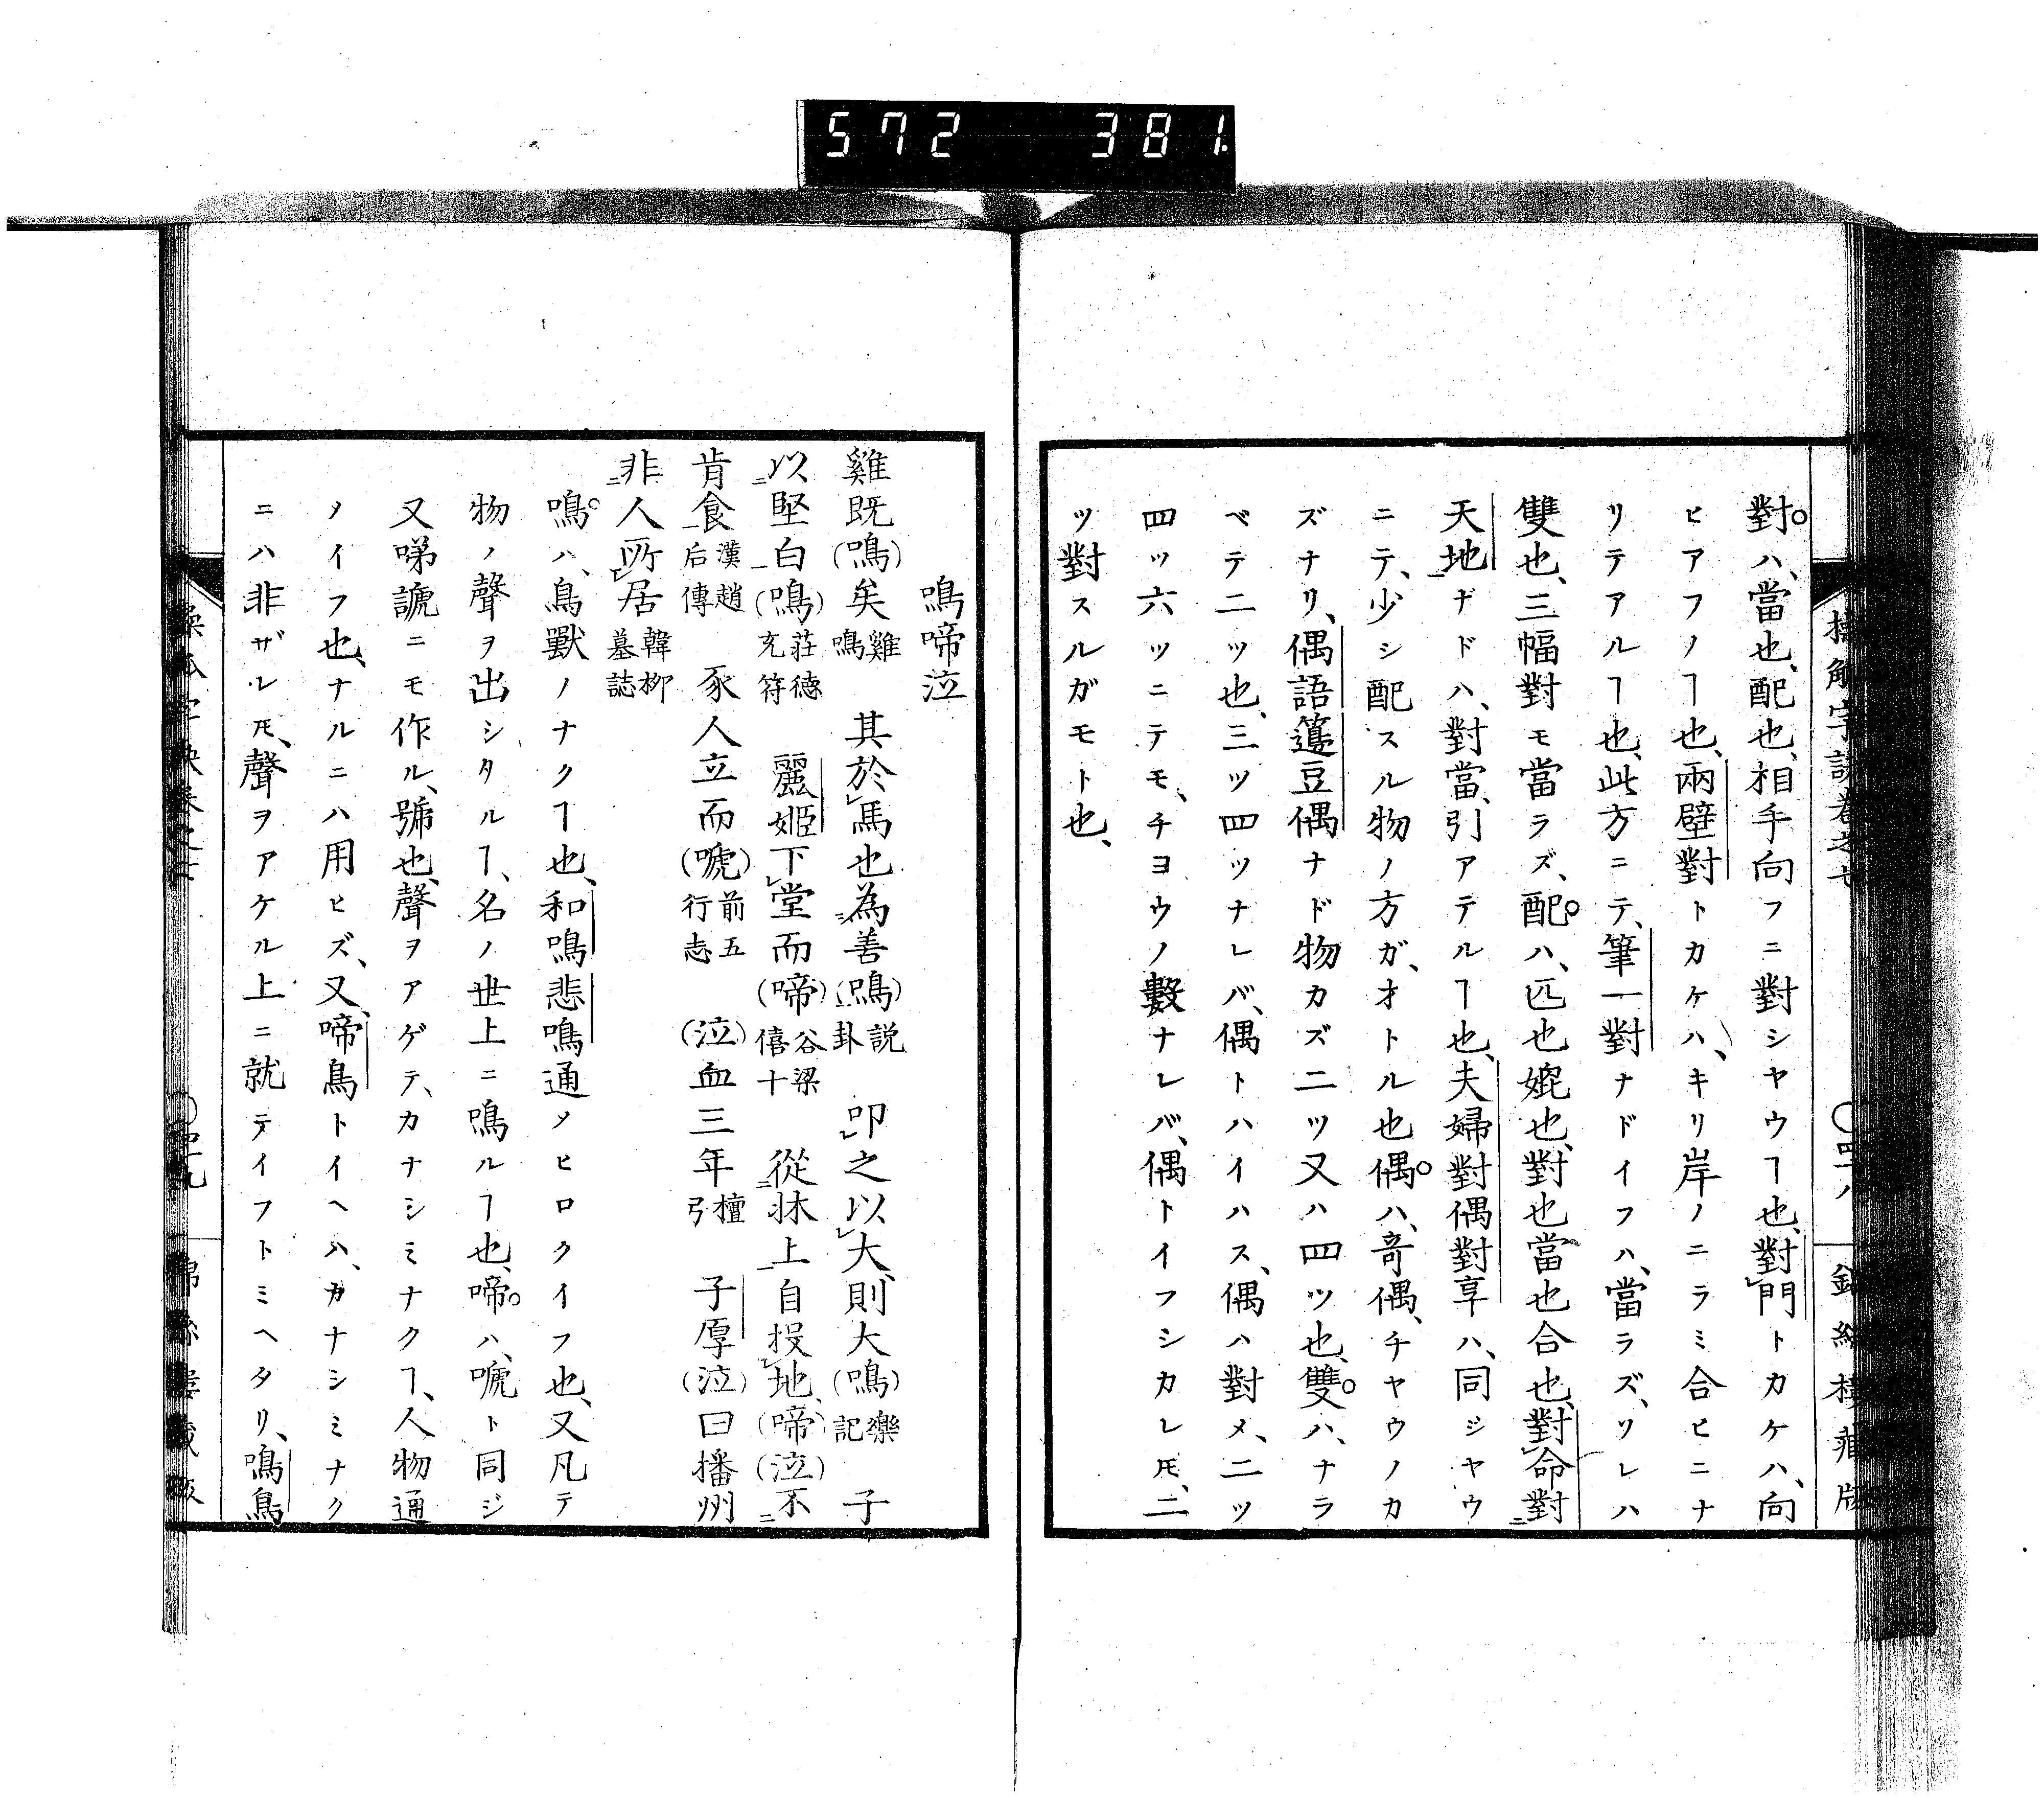 572 381.
對ハ、當也、配也、相手向フニ對シヤウヿ也、對門トカケハ、向
ヒアフノヿ也、兩壁對トカケハ、キリ岸ノニラミ合ヒニナ
リテアルヿ也、此方ニテ、筆一對ナドイフハ、當ラズ、ソレハ
雙也、三幅對モ當ラズ、配ハ、匹也媲也、對也當也合也、對命對
天地ナドハ、對當、引アテルヿ也、夫婦對偶對享ハ、同ジヤウ
ニテ、少シ配スル物ノ方ガ、オトル也偶ハ、竒偶、チヤウノカ
ズナリ、偶語籩豆偶ナド物カズ二ツ又ハ四ツ也、雙ハ、ナラ
ベテ二ツ也、三ツ四ツナレバ、偶トハイハス、偶ハ對メ、二ツ
四ツ六ツニテモ、チヨウノ數ナレバ、偶トイフシカレ𪜈、二
ツ對スルガモト也、
鳴啼泣
雞既(鳴)矣雞鳴 其於馬也為善(鳴)説卦 叩之以大、則大(鳴)樂記 子
以堅白(鳴)莊德充符 麗姬下堂而(啼)谷梁僖十 從牀上自投地、(啼)(泣)不
肯食漢趙后傳 豕人立而(嗁)前五行志 (泣)血三年檀弓 子厚(泣)曰播州
非人所居韓柳墓誌
鳴ハ、鳥獸ノナクヿ也、和鳴悲鳴通メヒロクイフ也、又凡テ
物ノ聲ヲ出シタルヿ、名ノ世上ニ鳴ルヿ也、啼ハ、嗁ト同ジ
又啼謕ニモ作ル、號也、聲ヲアゲテ、カナシミナクヿ、人物通
ノイフ也、ナルニハ用ヒズ、又、啼鳥トイヘハ、カナシミナク
ニハ非ザレ𪜈、聲ヲアケル上ニ就テイフトミヘタリ、鳴鳥